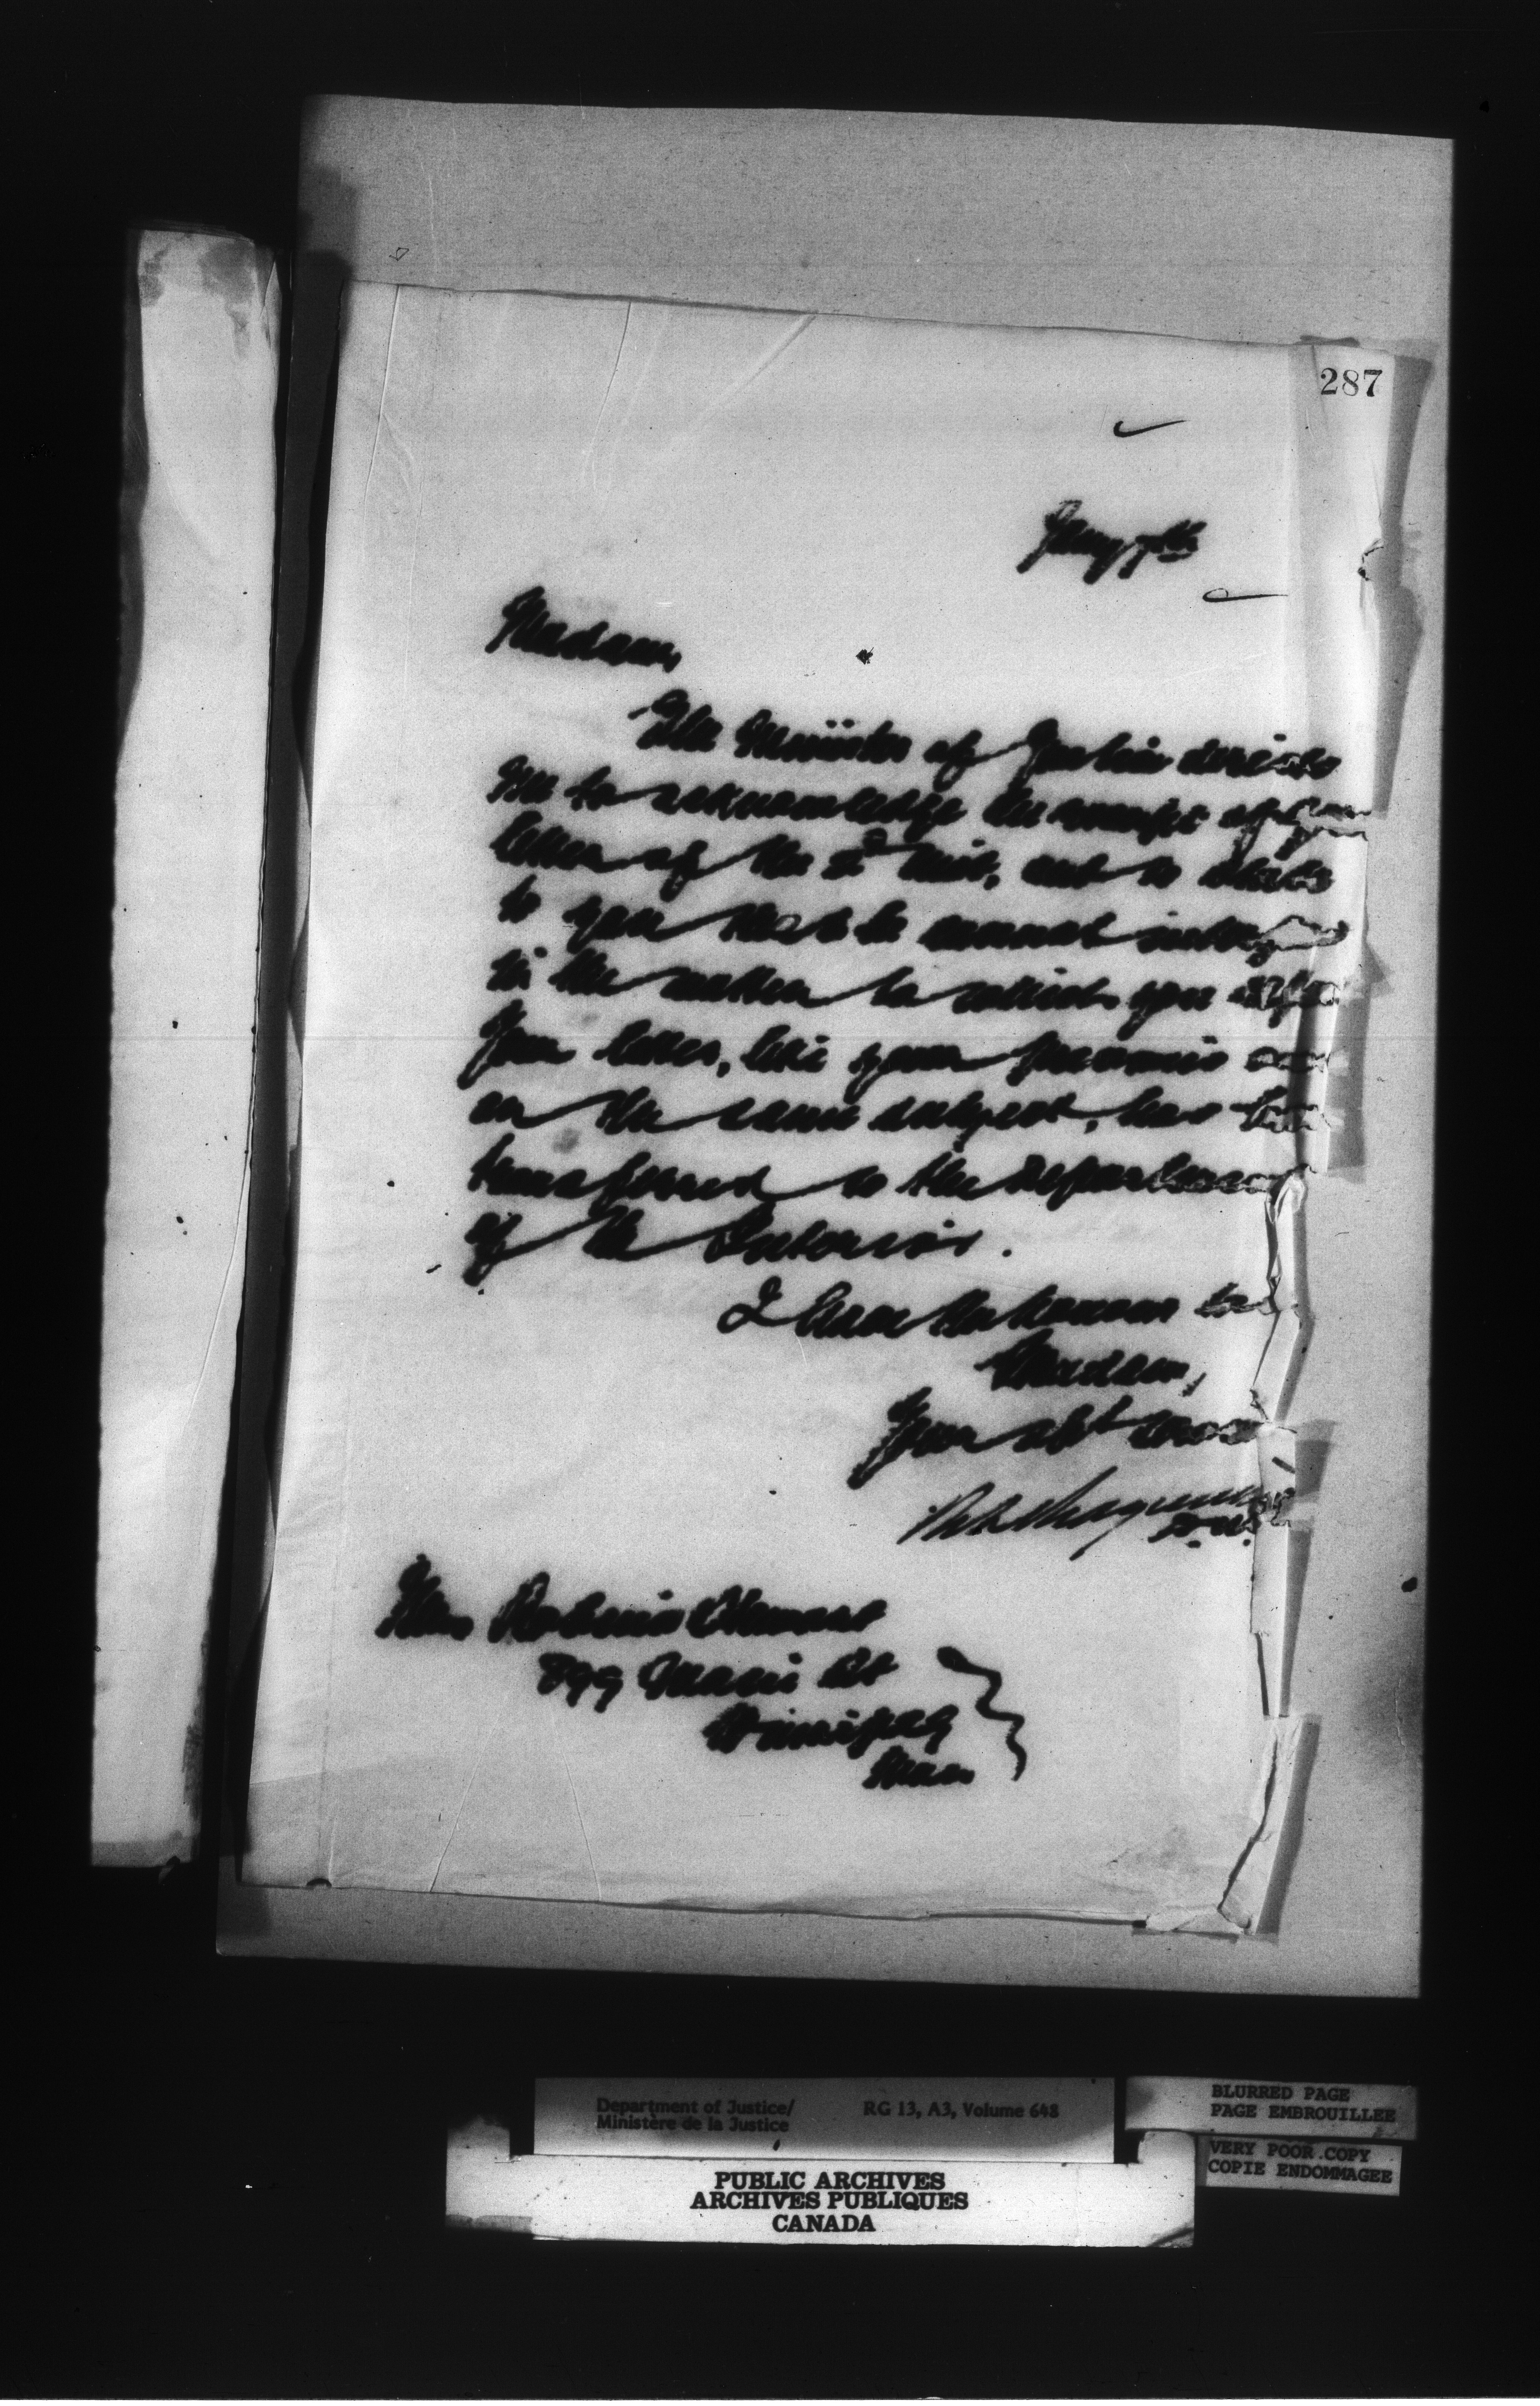 287
Jany 7th
Madam,
The Minister of Justice directs
me to acknowledge the receipt of your
letter of the 2d inst., and to state
to you that he cannot
in the matter to which you refer
Your letter, like your previous one
on the same subject, has been
transferred to the Department
of the Interior.
I have the honour to be
Madam,
Your obt
D.M.J.
899 Main St
Winnipeg
Man
Department of Justice/ RG 13, A3, Volume 648
Ministère de la Justice
BLURRED PAGE
PAGE EMBROUILLEE
VERY POOR COPY
COPIE ENDOMMAGEE
PUBLIC ARCHIVES
ARCHIVES PUBLIQUES
CANADA